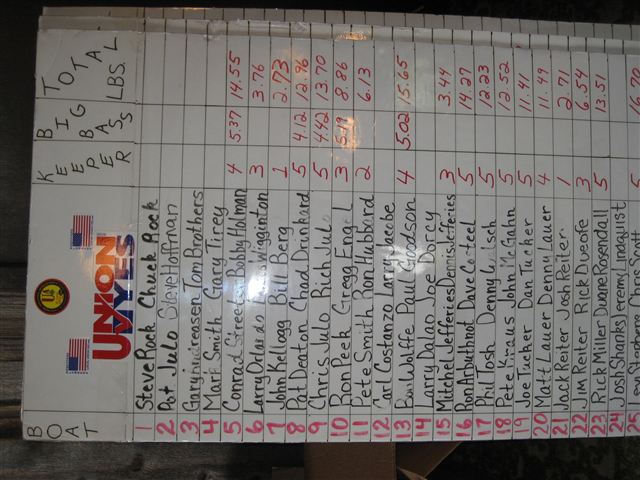 BOAT UNION YES KEEPER BIG BASS TOTAL LBS.
1 Steve Rock Chuck Rock
2 Pat Julo Steve Hoffman
3 Gary Andreasen Tom Brothers
4 Mark Smith Gary Tirey
5 Conrad Streeter Bobby Holman 4 5.37 14.55
6 Larry Orlando Wiggington 3 3.76
7 John Kellogg Bill Berg 1 2.73
8 Pat Deaton Chad 5 4.12 12.96
9 Chris Julo Rich Julo 5 4.42 13.70
10 Ron Peek Gregg Engel 3 5.19 8.86
11 Pete Smith Ron Hubbard 2 6.13
12 Carl Costanzo Larry
13 Wolffe Paul Goodson 4 5.02 15.65
14 Larry Dalan Joe Darcy
15 Mitchel Jefferies Dennis Jefferies 3 3.44
16 Ron Arbuthnot Dave Casteel 5 14.27
17 Phil Tosh Denny 5 12.23
18 Pete Kraus John McGahn 5 12.52
19 Joe Tucker Dan Tucker 5 11.41
20 Matt Lauer Dennis Lauer 4 11.49
21 Jack Reiter Josh Reiter 1 2.71
22 Jim Reiter Rick Dueofe 3 6.54
23 Rick Miller Duane Rosendall 5 13.51
24 Josh Shanks Jeremy Lindquist
25 Scott 5